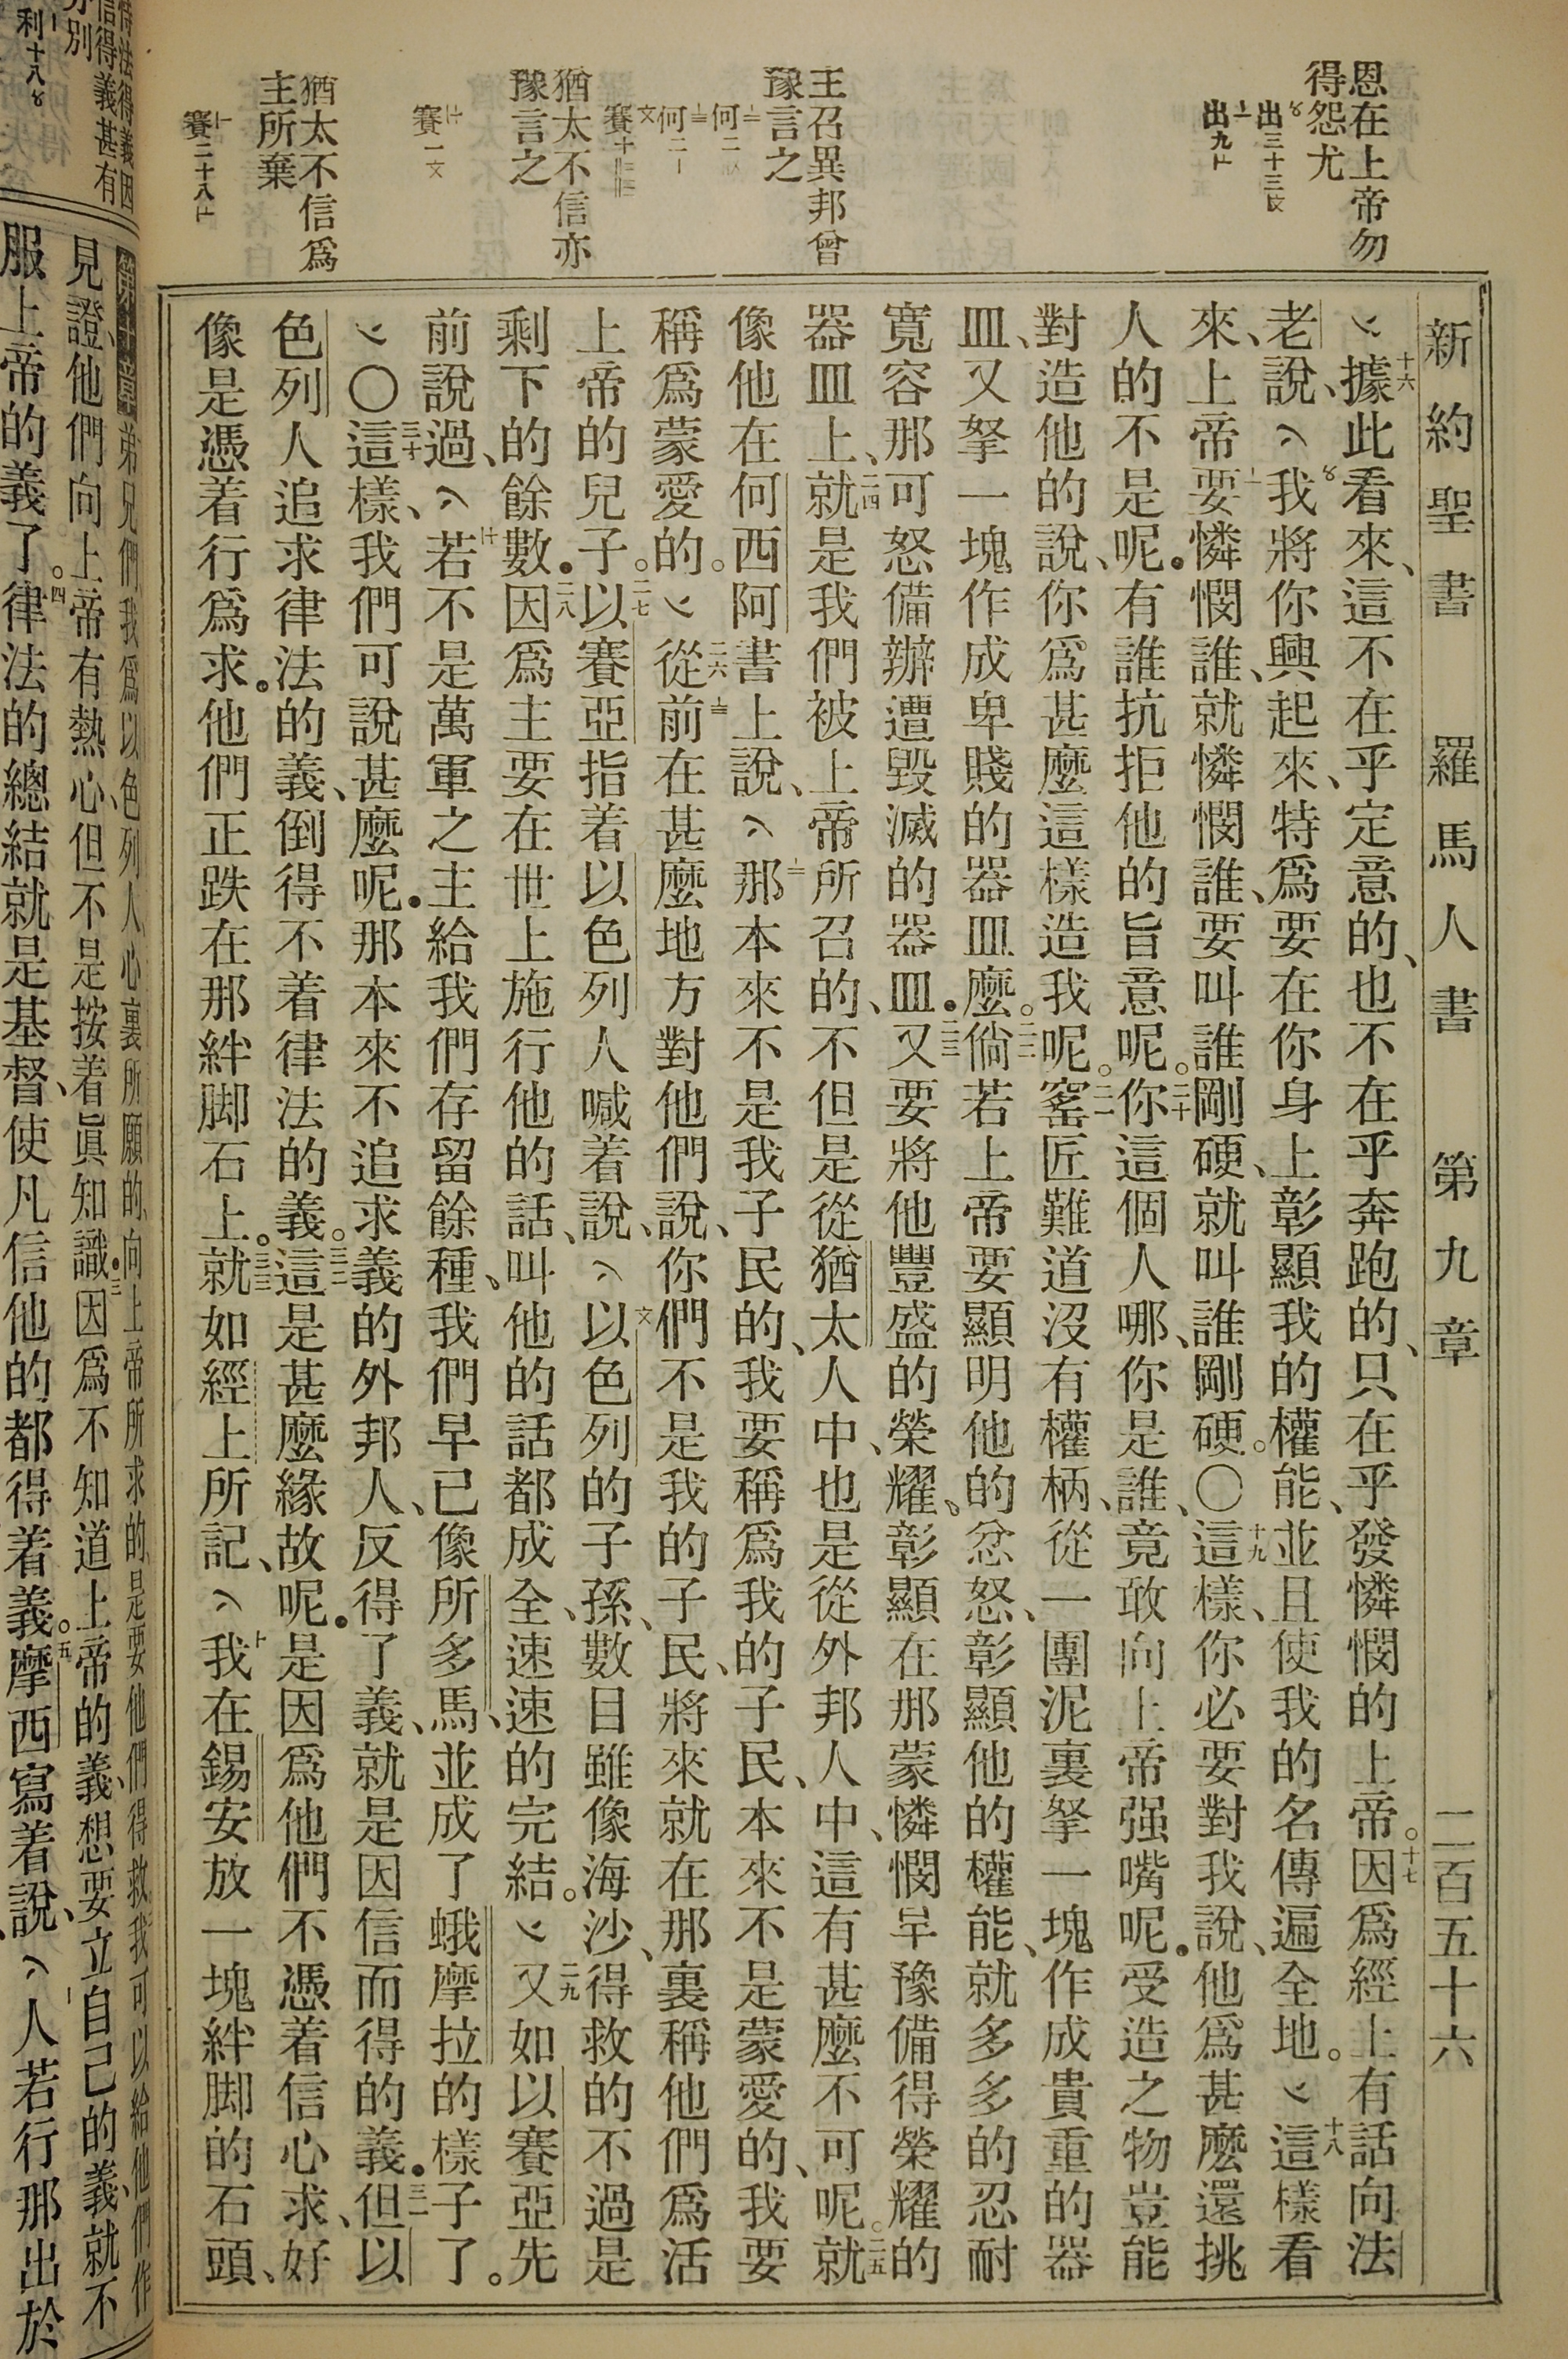 新約聖書 羅馬人書 第九章 二百五十六
恩在上帝勿
得怨尤
出三十三
出九
王召異邦曾
豫言之
何二
何二
賽十
猶太不信亦
豫言之
賽一
猶太不信爲
主所棄
賽二十八
十六據此看來、這不在乎定意的、也不在乎奔跑的、只在乎發憐憫的上帝。十七因爲經上有話向法
老說、我將你興起來、特爲要在你身上彰顯我的權能、並且使我的名傳遍全地。十八這樣看
來、上帝要憐憫誰、就憐憫誰、要叫誰剛硬、就叫誰剛硬。〇十九這樣、你必要對我說、他爲甚麼還挑
人的不是呢．有誰抗拒他的旨意呢。二十你這個人哪、你是誰、竟敢向上帝强嘴呢．受造之物豈能
對造他的說、你爲甚麼這樣造我呢。二一窰匠難道沒有權柄、從一團泥裏拏一塊作成貴重的器
皿、又拏一塊作成卑賤的器皿麼。二二倘若上帝要顯明他的忿怒、彰顯他的權能、就多多的忍耐
寬容那可怒備辦遭毀滅的器皿．二三又要將他豐盛的榮耀、彰顯在那蒙憐憫早豫備得榮耀的
器皿上、二四就是我們被上帝所召的、不但是從猶太人中、也是從外邦人中、這有甚麼不可呢。二五就
像他在何西阿書上說、那本來不是我子民的、我要稱爲我的子民、本來不是蒙愛的、我要
稱爲蒙愛的。二六從前在甚麼地方對他們說、你們不是我的子民、將來就在那裏稱他們爲活
上帝的兒子。二七以賽亞指着以色列人喊着說、以色列的子孫、數目雖像海沙、得救的不過是
剩下的餘數．二八因爲主要在世上施行他的話、叫他的話都成全、速速的完結。二九又如以賽亞先
前說過、若不是萬軍之主給我們存留餘種、我們早已像所多馬、並成了蛾摩拉的樣子了。
〇三十這樣、我們可說甚麼呢．那本來不追求義的外邦人、反得了義、就是因信而得的義．三一但以
色列人追求律法的義、倒得不着律法的義。三二這是甚麼緣故呢．是因爲他們不憑着信心求、好
像是憑着行爲求．他們正跌在那絆脚石上。三三就如經上所記、我在錫安放一塊絆脚的石頭、
利十八
有別
信得義甚有
法得義因
第十章 弟兄們我爲以色列人、心裏所願的、向上帝所求的、是要他們得救．我可以給他們作
見證、他們向上帝有熱心、但不是按着眞知識．三因爲不知道上帝的義、想要立自己的義、就不
服上帝的義了。四律法的總結就是基督、使凡信他的都得着義。五摩西寫着說、人若行那出於